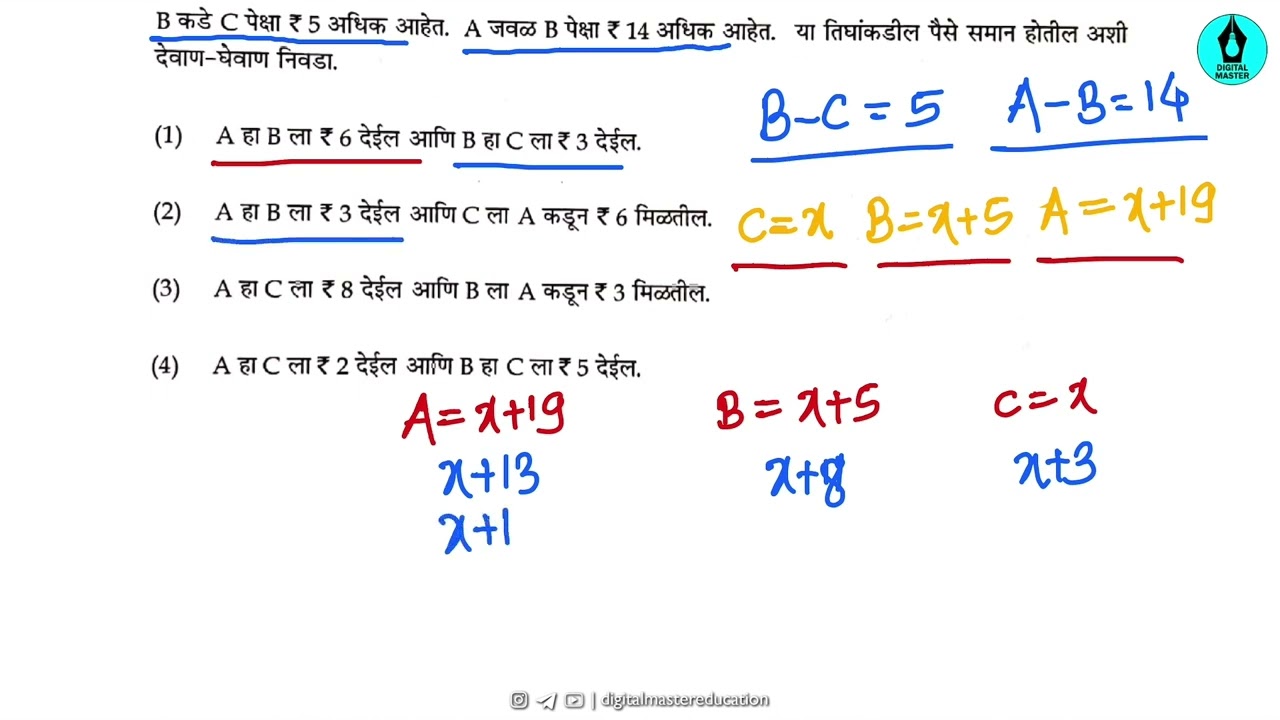 B कडे C पेक्षा ₹ 5 अधिक आहेत. A जवळ B पेक्षा ₹ 14 अधिक आहेत. या तिघांकडील पैसे समान होतील अशी
देवाण-घेवाण निवडा.
DIGITAL
MASTER
B-C = 5 A-B=14
(1) A हा B ला ₹ 6 देईल आणि B हा C ला ₹ 3 देईल.
(2) A हा B ला ₹ 3 देईल आणि C ला A कडून ₹ 6 मिळतील.
C=x B=x+5 A=x+19
(3) A हा C ला ₹ 8 देईल आणि B ला A कडून ₹ 3 मिळतील.
(4) A हा C ला ₹ 2 देईल आणि B हा C ला ₹ 5 देईल.
A=x+19 B=x+5 C=x
x+13 x+8 x+3
x+1
| digitalmastereducation